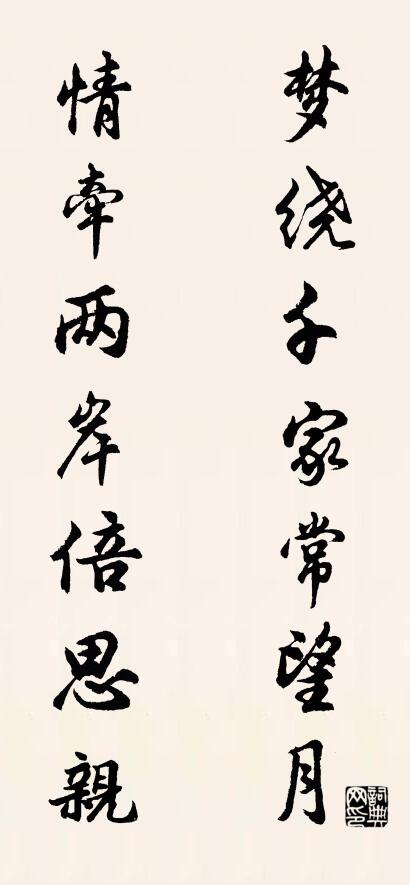 梦绕千家常望月
情牵两岸倍思親
詞典网印